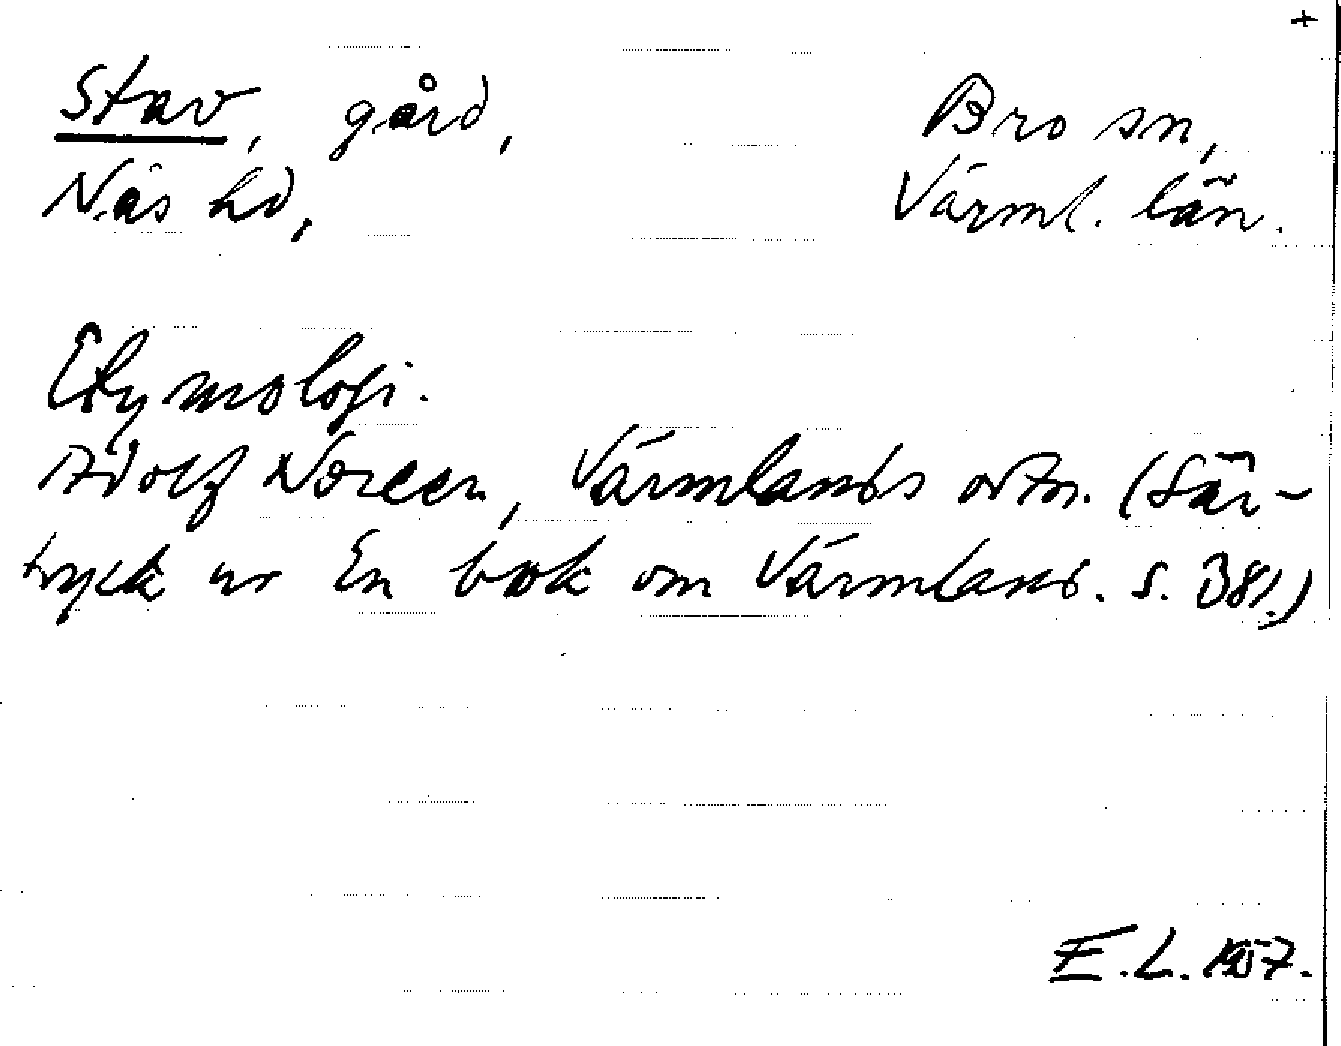 +
Stav, gård, Bro sn,
Näs hd, Värml. län.
Etymologi.
Adolf Noreen, Värmlands ortn. (Sär-
tryck ur En bok om Värmland. S. 381.)
E.L. 1957.